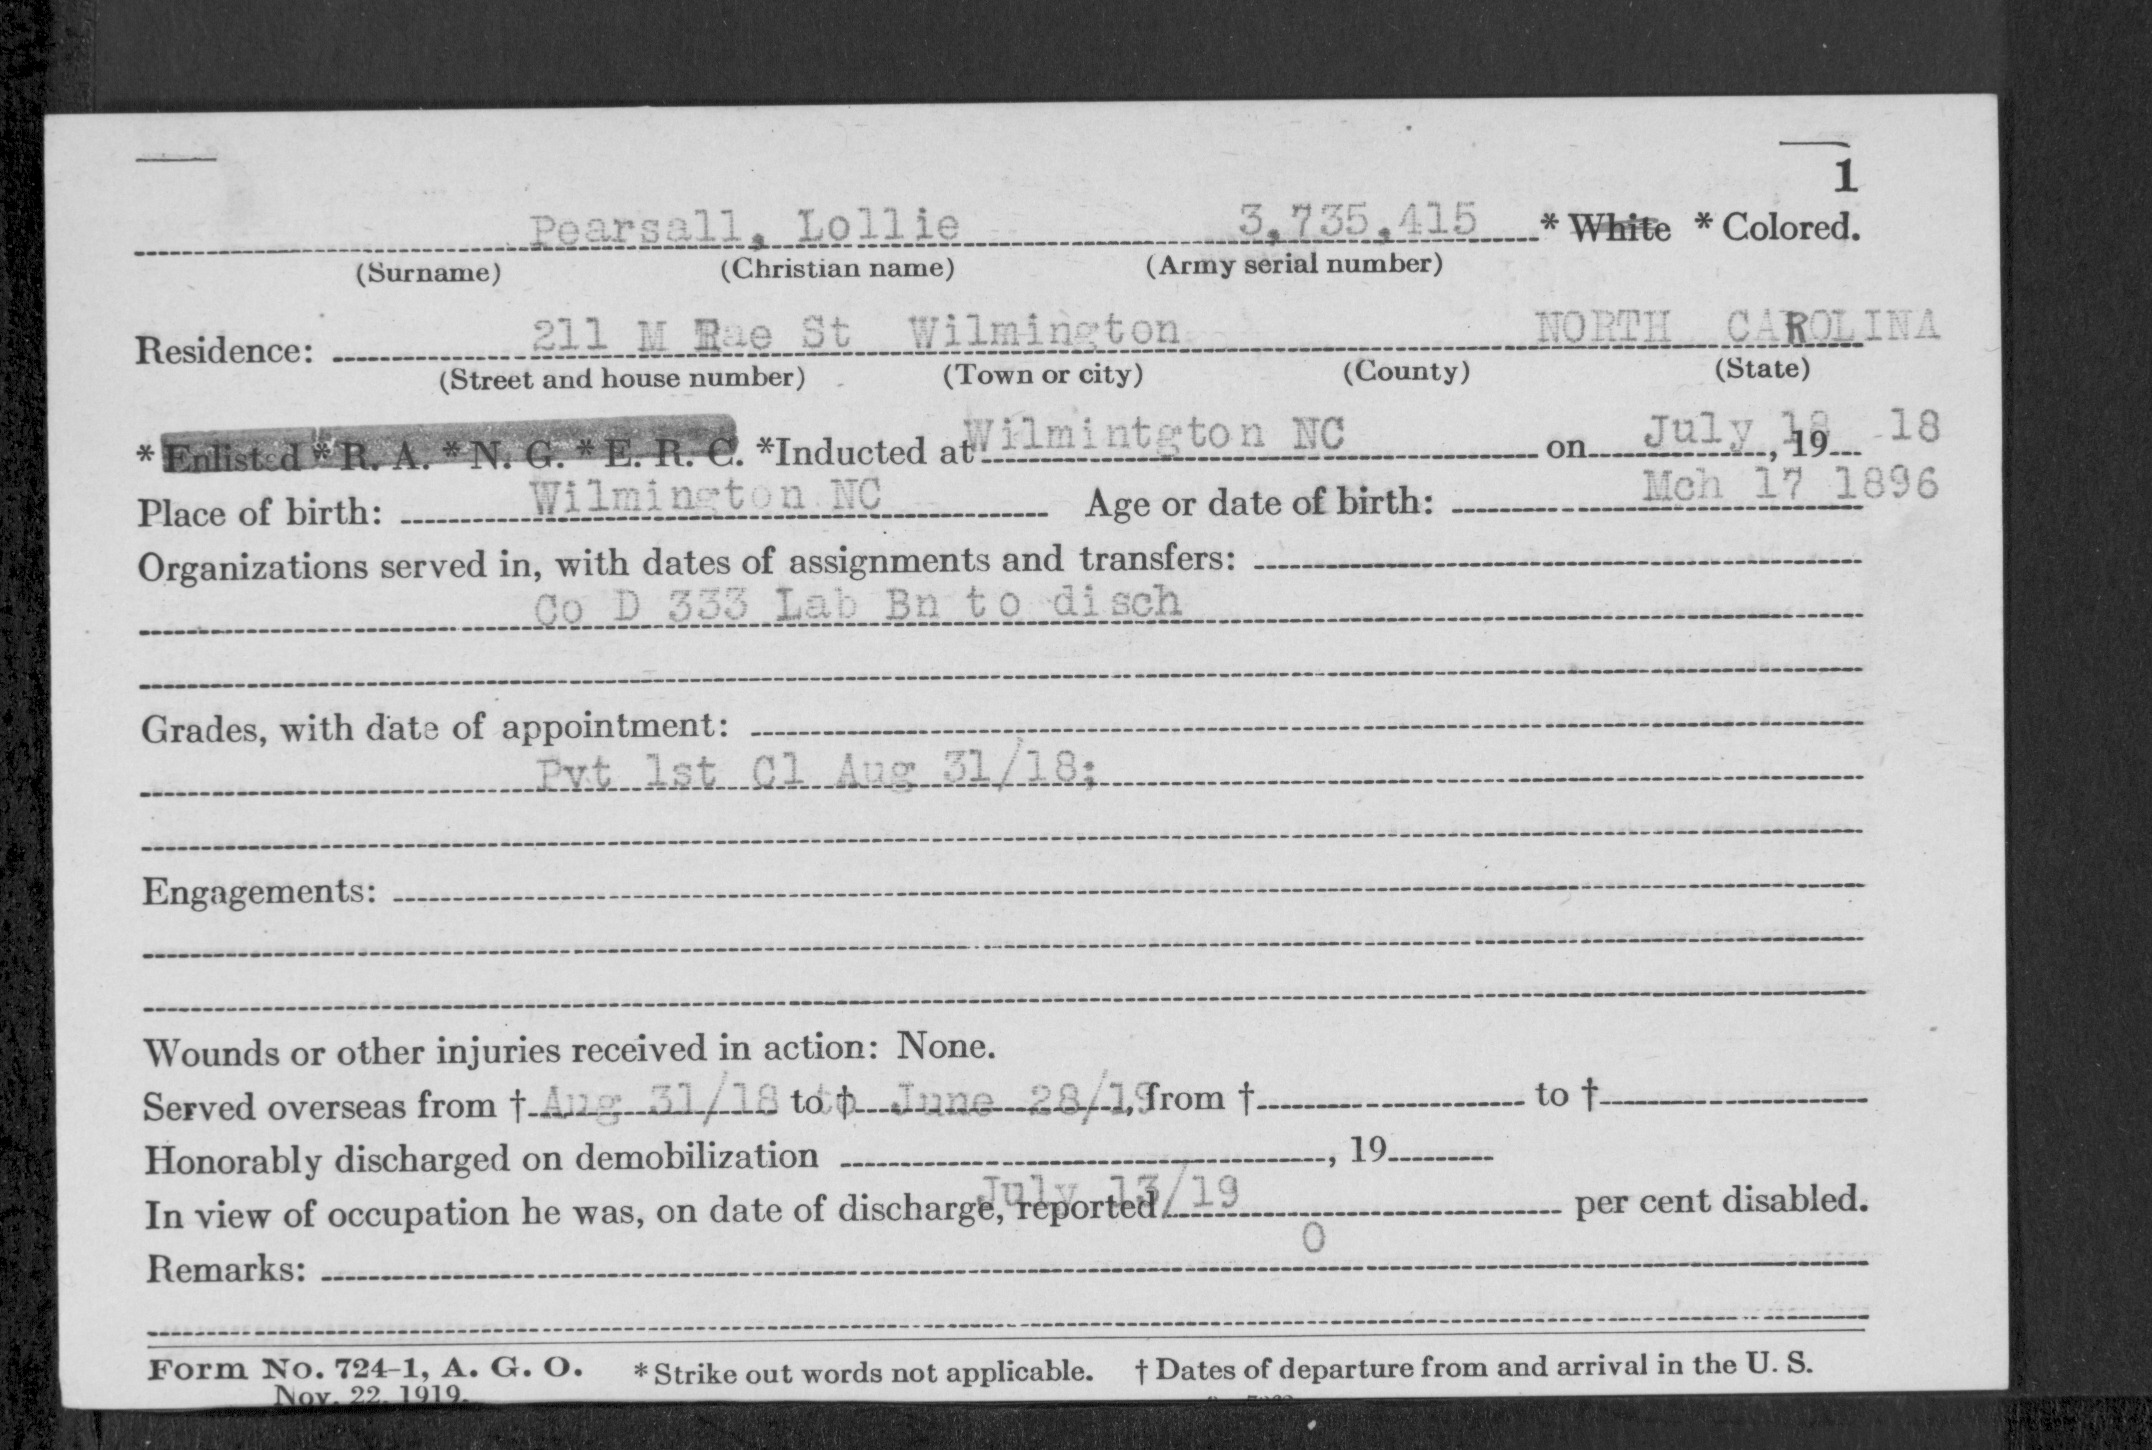 1
Pearsall, Lollie 3,735,415 * White * Colored.
(Surname) (Christian name) (Army serial number)
Residence: 211 M Rae St Wilmington NORTH CAROLINA
(Street and house number) (Town or city) (County) (State)
* Enlisted * R. A. * N. G. * E. R. C. *Inducted at Wilmintgton NC on July 18, 19 18
Place of birth: Wilmington NC Age or date of birth: Mch 17 1896
Organizations served in, with dates of assignments and transfers:
Co D 333 Lab Bn to disch
Grades, with date of appointment:
Pvt 1st Cl Aug 31/18;
Engagements:
Wounds or other injuries received in action: None.
Served overseas from † Aug 31/18 to † to June 28/19, from † to †
Honorably discharged on demobilization , 19
July 13/19
In view of occupation he was, on date of discharge, reported per cent disabled.
0
Remarks:
Form No. 724-1, A. G. O. * Strike out words not applicable. † Dates of departure from and arrival in the U. S.
Nov. 22, 1919.